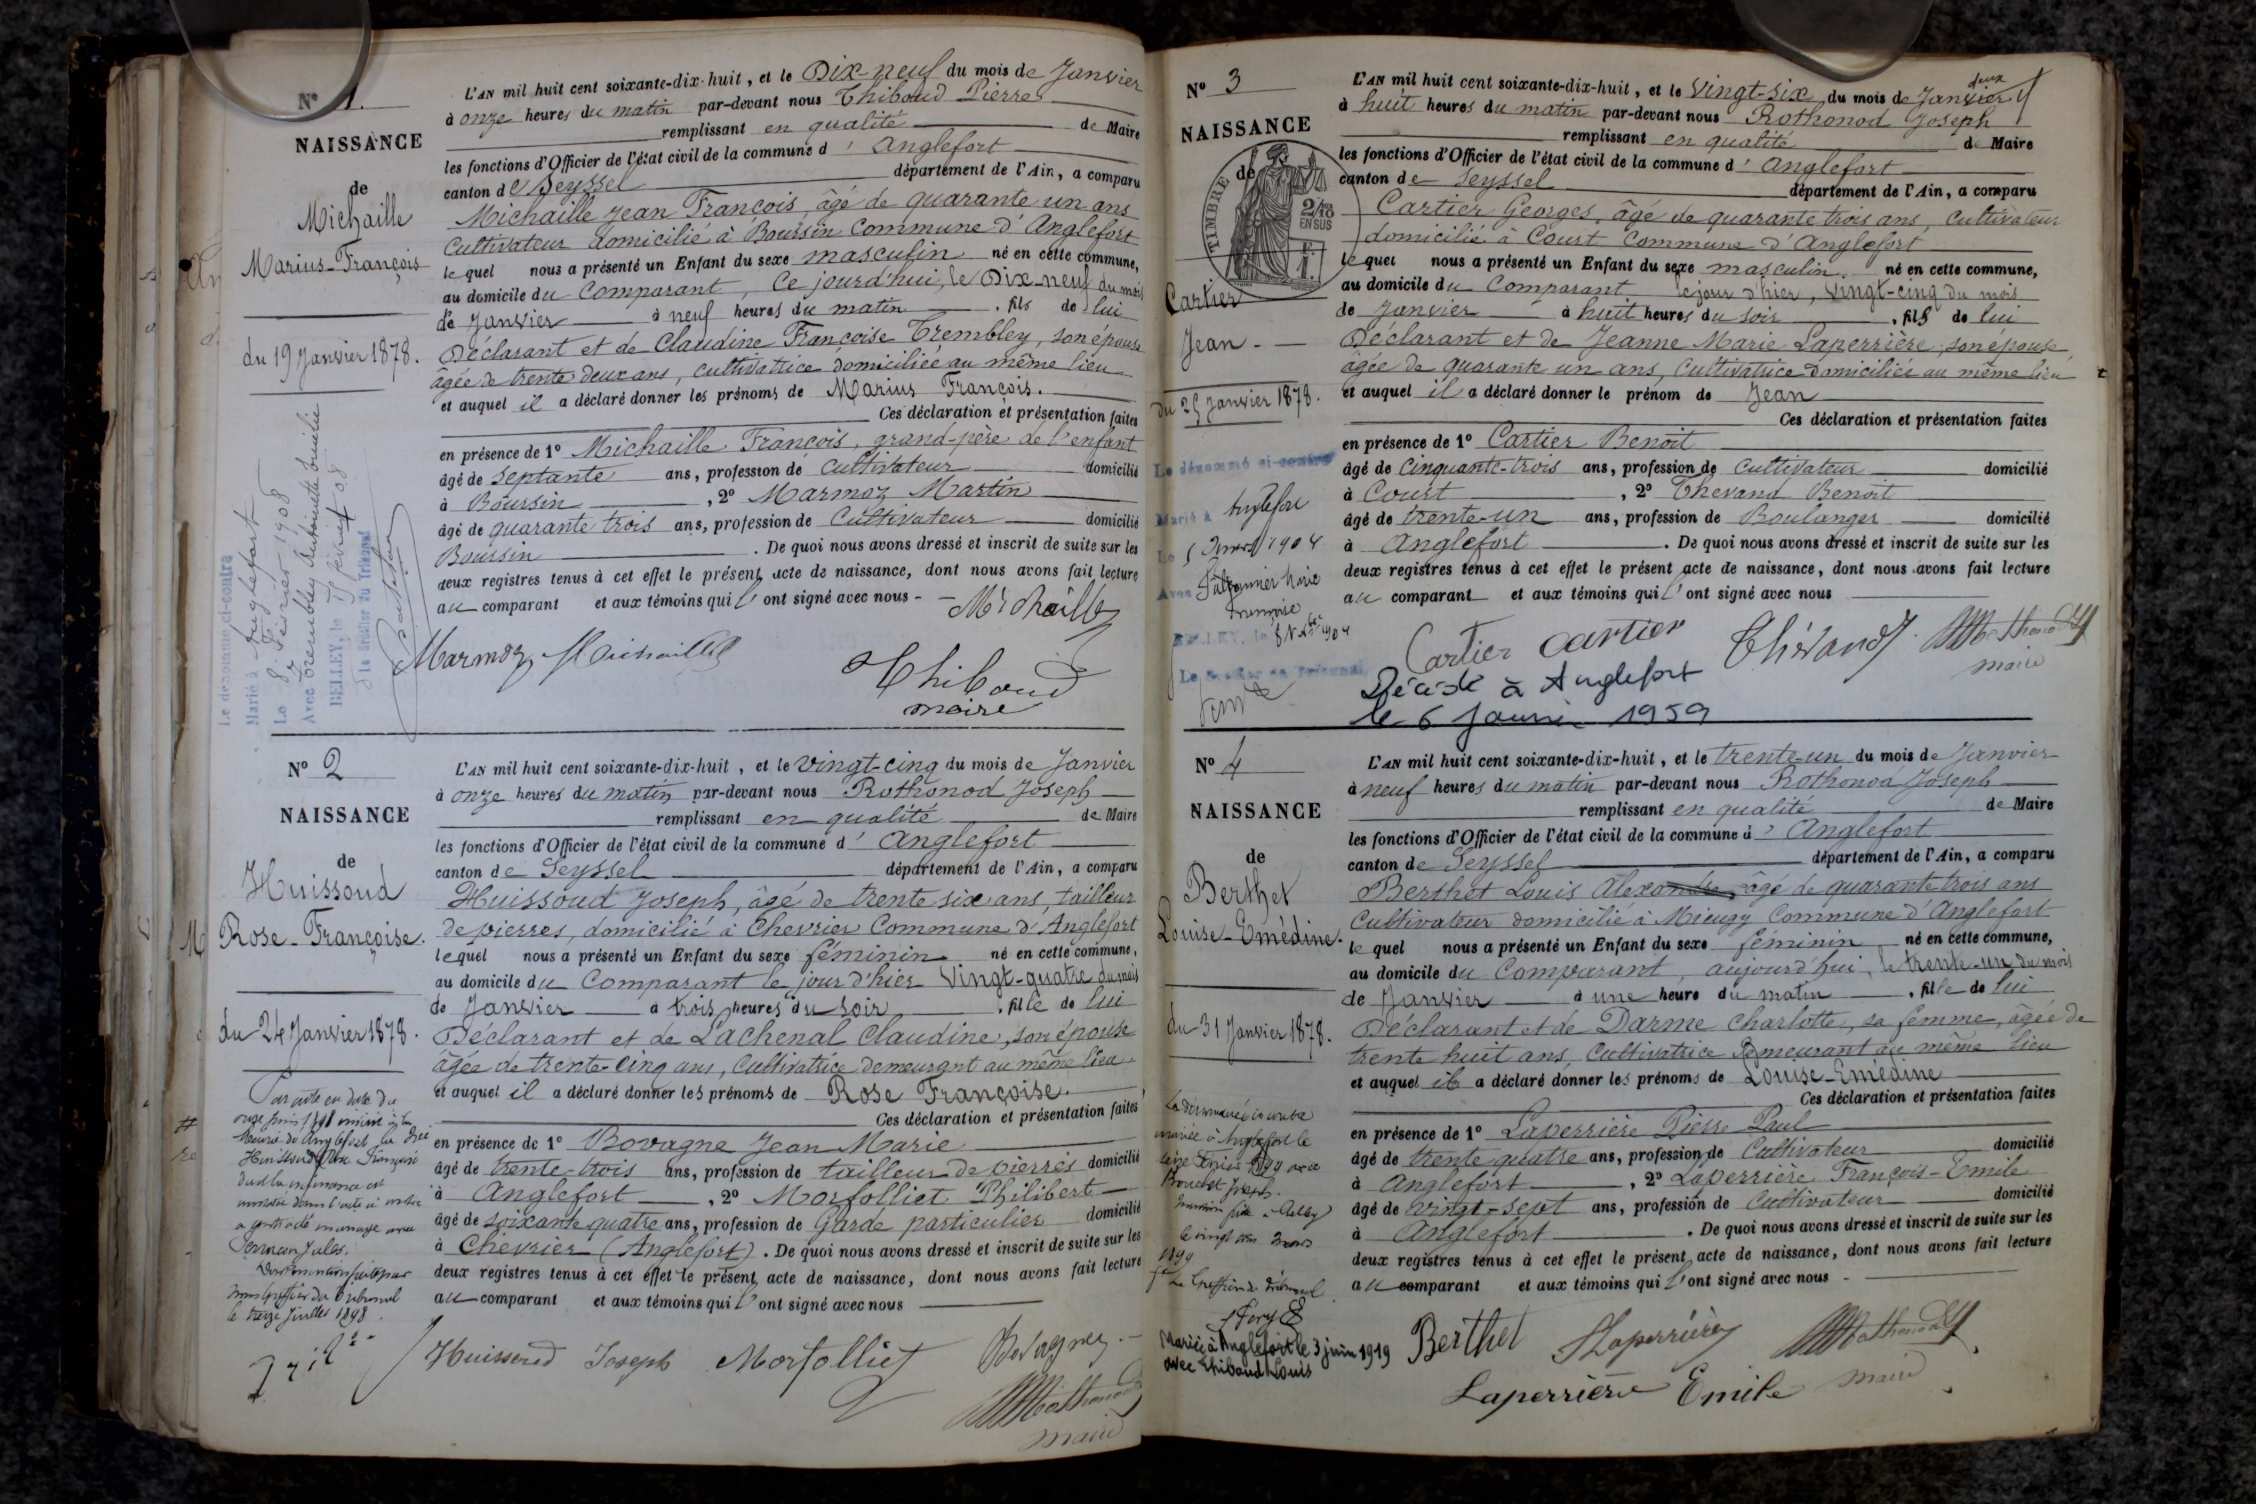 N° 1.
NAISSANCE
de
Michaille
Marius-François
du 19 Janvier 1878.
Le dénommé ci-contre
Marié à Anglefort
Le 8 Février 1908
Avec Trembley Antoinette
BELLEY, le
Le Greffier du Tribunal
L'AN mil huit cent soixante-dix-huit, et le Dix-neuf du mois de Janvier
à onze heures du matin par-devant nous Thiboud Pierre
remplissant en qualité de Maire
les fonctions d'Officier de l'état civil de la commune d' Anglefort
canton de Seyssel département de l'Ain, a comparu
Michaille Jean François, âgé de quarante un ans
Cultivateur domicilié à Boursin Commune d'Anglefort
lequel nous a présenté un Enfant du sexe masculin né en cette commune,
au domicile du Comparant, Ce jourd'hui, le Dix-neuf du mois
de Janvier à neuf heures du matin, fils de lui
Déclarant et de Claudine Françoise Trembley, son épouse
âgée de trente deux ans, cultivatrice domiciliée au même lieu
et auquel il a déclaré donner les prénoms de Marius François.
Ces déclaration et présentation faites
en présence de 1° Michaille François, grand-père de l'enfant
âgé de septante ans, profession de Cultivateur domicilié
à Boursin, 2° Marmoz Martin
âgé de quarante trois ans, profession de Cultivateur domicilié
Boursin. De quoi nous avons dressé et inscrit de suite sur les
deux registres tenus à cet effet le présent acte de naissance, dont nous avons fait lecture
au comparant et aux témoins qui l'ont signé avec nous - - Michaille
Marmoz Michaille
Thiboud
maire
N° 2
NAISSANCE
de
Huissoud
Rose-Françoise.
du 24 Janvier 1878.
Par acte en date du
onze juin 1898 inscrit à la
Mairie de Anglefort la dite
Huissoud Rose Françoise
dont la naissance est
constatée dans l'acte ci contre
a contracté mariage avec
Jules.
le treize Juillet 1898.
L'AN mil huit cent soixante-dix-huit, et le vingt-cinq du mois de Janvier
à onze heures du matin par-devant nous Rothonod Joseph
remplissant en qualité de Maire
les fonctions d'Officier de l'état civil de la commune d' Anglefort
canton de Seyssel département de l'Ain, a comparu
Huissoud Joseph, âgé de trente six ans, tailleur
de pierres, domicilié à Chevrier Commune d'Anglefort
lequel nous a présenté un Enfant du sexe féminin né en cette commune,
au domicile du Comparant le jour d'hier Vingt-quatre du mois
de Janvier à trois heures du soir, fille de lui
Déclarant et de Lachenal Claudine, son épouse
âgée de trente-cinq ans, Cultivatrice demeurant au même lieu
et auquel il a déclaré donner les prénoms de Rose Françoise.
Ces déclaration et présentation faites
en présence de 1° Bovagne Jean Marie
âgé de trente-trois ans, profession de tailleur de pierres domicilié
à Anglefort, 2° Morfolliet Philibert
âgé de soixante quatre ans, profession de Garde particulier domicilié
à Chevrier (Anglefort). De quoi nous avons dressé et inscrit de suite sur les
deux registres tenus à cet effet le présent acte de naissance, dont nous avons fait lecture
au comparant et aux témoins qui l'ont signé avec nous
Huissoud Joseph Morfolliet Bovagne
Rothonod
maire
N° 3
NAISSANCE
de
TIMBRE
2/10
EN SUS
Cartier
Jean
du 25 Janvier 1878.
Le dénommé ci-contre
Marié à Anglefort
Le 5 1904
Avec Marie
Françoise
BELLEY, le 8 1904
Le Greffier du Tribunal
L'AN mil huit cent soixante-dix-huit, et le Vingt-six du mois de Janvier
à huit heures du matin par-devant nous Rothonod Joseph
remplissant en qualité de Maire
les fonctions d'Officier de l'état civil de la commune d' Anglefort
canton de Seyssel département de l'Ain, a comparu
Cartier Georges, âgé de quarante trois ans, cultivateur
domicilié à Court Commune d'Anglefort
lequel nous a présenté un Enfant du sexe masculin. né en cette commune,
au domicile du Comparant le jour d'hier, Vingt-cinq du mois
de Janvier à huit heures du soir, fils de lui
Déclarant et de Jeanne Marie Laperrière, son épouse
âgée de quarante un ans, Cultivatrice domiciliée au même lieu
et auquel il a déclaré donner le prénom de Jean
Ces déclaration et présentation faites
en présence de 1° Cartier Benoit
âgé de Cinquante-trois ans, profession de Cultivateur domicilié
à Court, 2° Thevand Benoit
âgé de trente-un ans, profession de Boulanger domicilié
à Anglefort. De quoi nous avons dressé et inscrit de suite sur les
deux registres tenus à cet effet le présent acte de naissance, dont nous avons fait lecture
au comparant et aux témoins qui l'ont signé avec nous
Cartier Cartier Thévand Rothonod
maire
Décédé à Anglefort
le 6 Janvier 1959
N° 4
NAISSANCE
de
Berthet
Louise-Emédine.
du 31 Janvier 1878.
La dénommée ci contre
mariée à Anglefort le
seize 1899 avec
Bouchet Joseph.
Mention faite à Belley
le vingt mars
1899
Le Greffier du Tribunal
Mariée à Anglefort le 3 juin 1919
avec Thiboud Louis
L'AN mil huit cent soixante-dix-huit, et le trente-un du mois de Janvier
à neuf heures du matin par-devant nous Rothonod Joseph
remplissant en qualité de Maire
les fonctions d'Officier de l'état civil de la commune d' Anglefort
canton de Seyssel département de l'Ain, a comparu
Berthet Louis Alexandre âgé de quarante trois ans
Cultivateur domicilié à Mieugy Commune d'Anglefort
lequel nous a présenté un Enfant du sexe féminin né en cette commune,
au domicile du Comparant, aujourd'hui, le trente-un du mois
de Janvier à une heure du matin, fille de lui
Déclarant et de Darme Charlotte, sa femme, âgée de
trente huit ans, Cultivatrice demeurant au même lieu
et auquel il a déclaré donner les prénoms de Louise-Emédine
Ces déclaration et présentation faites
en présence de 1° Laperrière Pierre Paul
âgé de trente quatre ans, profession de Cultivateur domicilié
à Anglefort, 2° Laperrière François-Emile
âgé de vingt-sept ans, profession de Cultivateur domicilié
à Anglefort. De quoi nous avons dressé et inscrit de suite sur les
deux registres tenus à cet effet le présent acte de naissance, dont nous avons fait lecture
au comparant et aux témoins qui l'ont signé avec nous -
Berthet Laperrière Rothonod
Laperrière Emile maire